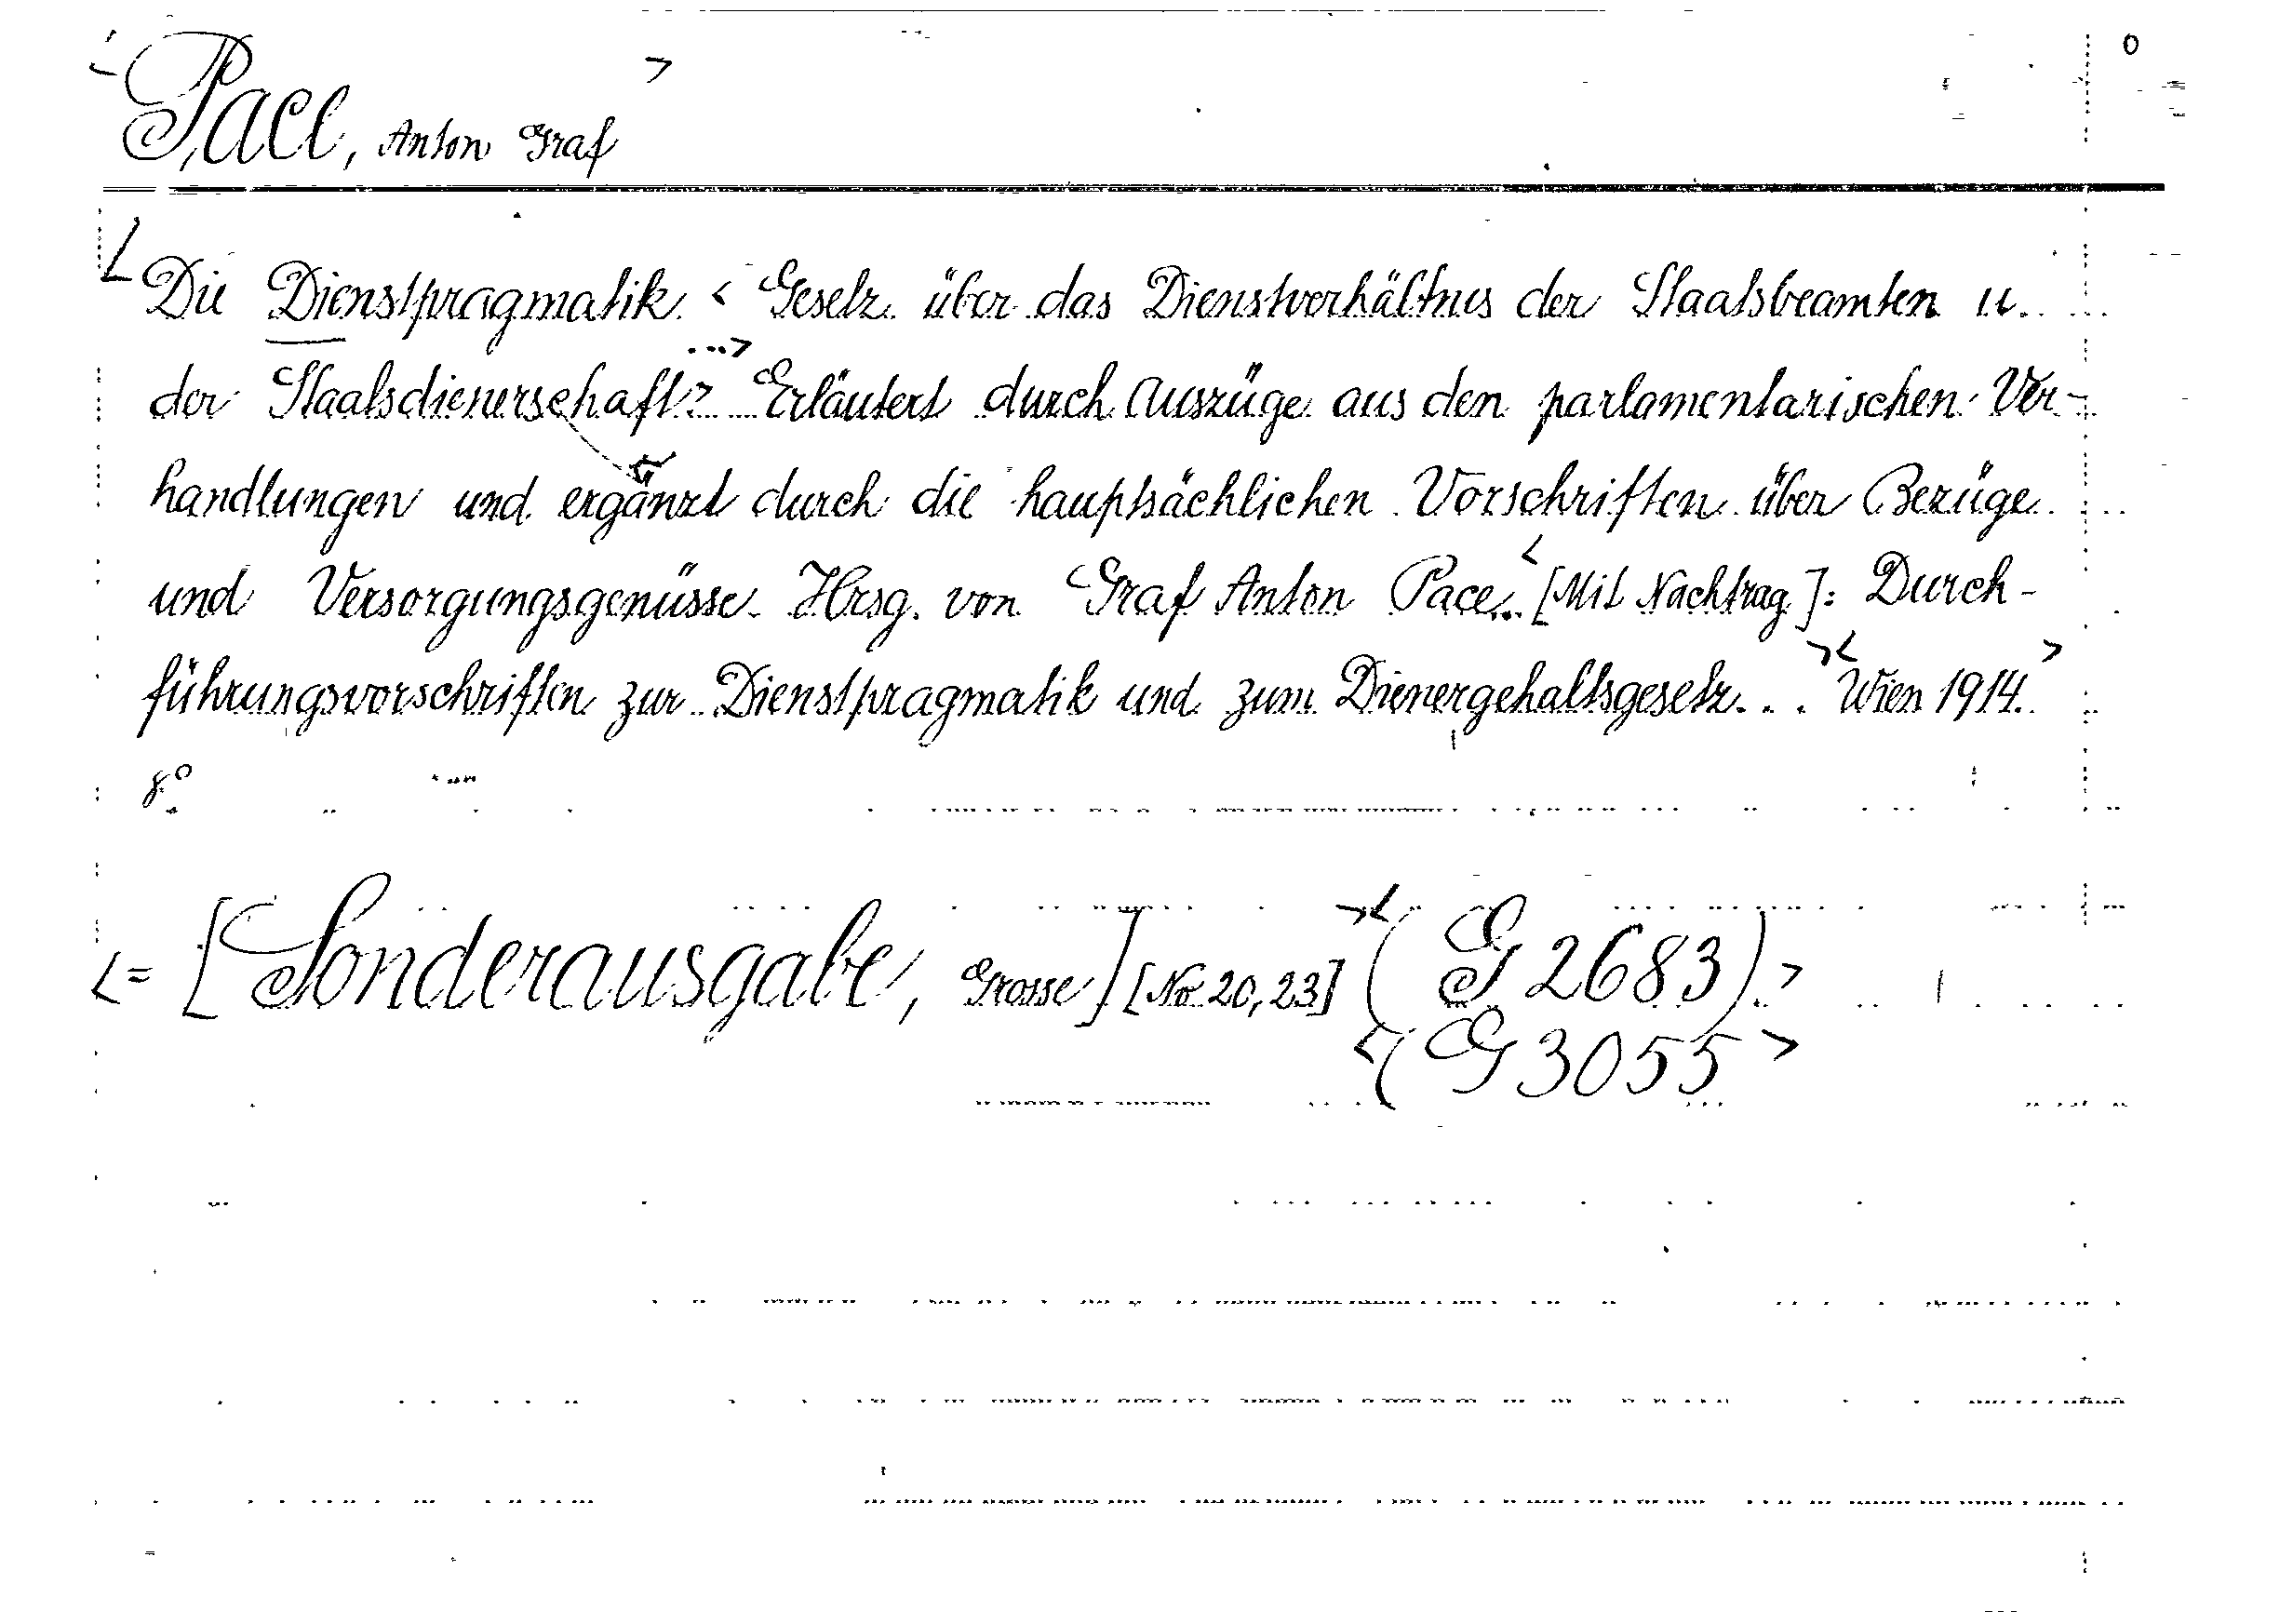 <Pace, Anton Graf>
<Die Dienstpragmatik. <Gesetz über das Dienstverhältnis der Staatsbeamten u.
der Staatsdienerschaft ...> Erläutert durch Auszüge aus den parlamentarischen Ver-
handlungen und ergänzt durch die hauptsächlichen Vorschriften über Bezüge
und Versorgungsgenüsse. Hrsg. von Graf Anton Pace. <[Mit Nachtrag]: Durch-
führungsvorschriften zur Dienstpragmatik und zum Dienergehaltsgesetz... ><Wien 1914.>
8°
<= [Sonderausgabe, Grosse] [No 20, 23] ><(G 2683).>
<(G 3055>